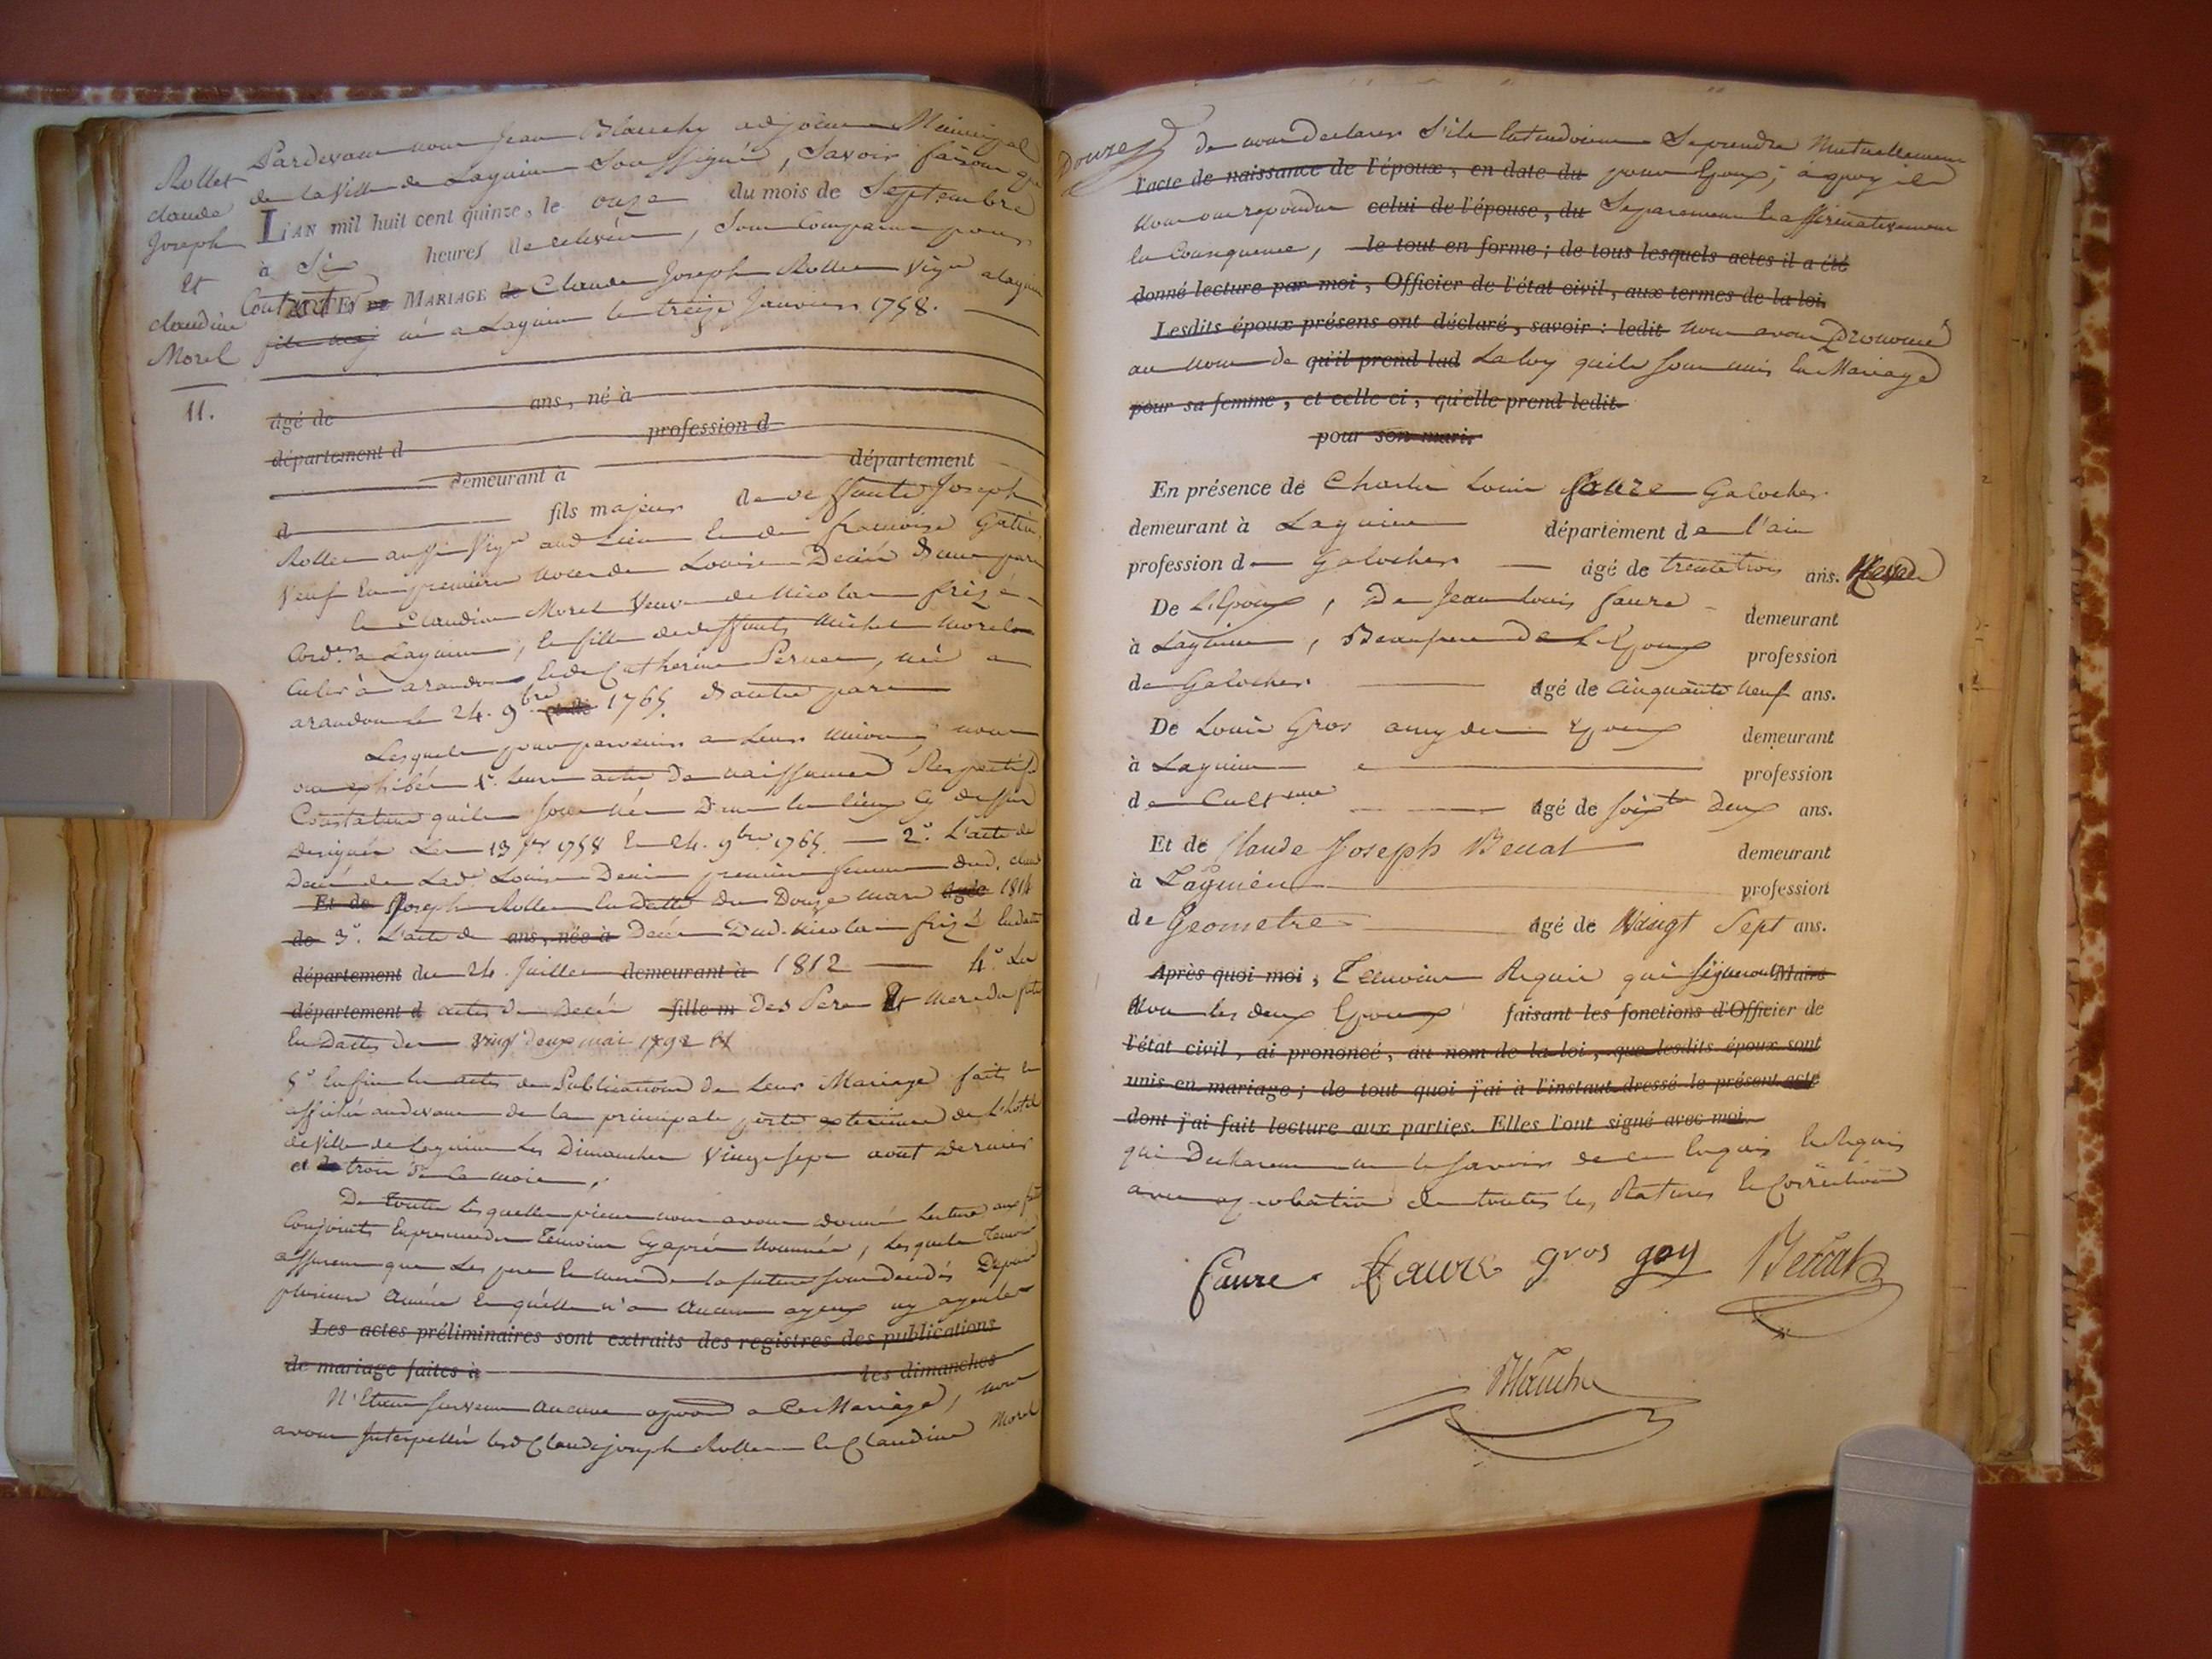 Rollet
claude
Joseph
Et
claudine
Morel
11.
Pardevant nous Jean Blanchy adjoint Municipal
de la Ville de Lagnieu Soussigné, Savoir faisons que
L'AN mil huit cent quinze, le onze du mois de Septembre
à Six heures de relevée, Sont Comparus pour
Contracter MARIAGE Claude Joseph Rollet Vign a Lagnieu
né a Lagnieu le treize Janvier 1758.
agé de ans, né à
département d profession d
demeurant à département
d fils majeur de deffunts Joseph
Rollet aussi Vign aud Lieu Et de françoise
Veuf En premiere noces de Louise Decié d'une part
Et Claudine Morel Veuve de Nicolas frizé
Cord. a Lagnieu, Et fille de deffunts Michel Morel
Cult. à arandon Et de Catherine Pernet, née a
arandon le 24. 9bre 1765. d'autre part
Lesquels pour parvenir a Leur Union, nous
ont exhibé 1.° Leurs actes de naissance Respectifs
Constatant qu'ils sont nés Dans les lieux Cy dessus
designés Les 13 Jer 1758 Et 24. 9bre 1765. — 2.° L'acte de
Decès de Lade Louise Decié premiere femme dud. claude
Et de Joseph Rollet En datte du Douze mars agée 1814
de 3.° L'acte de ans, née à Decès Dud. Nicolas frizé En datte
département du 24 Juillet demeurant à 1812 — 4.° Les
département d actes de decés fille m Des Pere Et Mere de la fut
En Dattes des vingt deux mai 1792 Et
5.° Enfin les actes de Publications de Leur Mariage faits et
affichés audevant de la principale porte exterieure de L'hotel
de Ville de Lagnieu Les Dimanches Vingt sept aout dernier
et trois de ce mois,
De toutes Lesquelles pieces nous avons donné Lecture aux futs
Conjoints En presence des Temoins Cy après Nommés, Lesquels Temoins
assurent que Les pere Et mere de la future sont decédés Depuis
plusieurs Années Et qu'elle n'a Aucuns ayeux ny ayeules
Les actes préliminaires sont extraits des registres des publications
de mariage faites à les dimanches
N'Etant survenu Aucune oppon a Ce Mariage, nous
avons Interpellés lesd Claude joseph Rollet Et Claudine Morel
Douze
de nous Declarer S'ils Entendoient Se prendre Mutuellement
l'acte de naissance de l'époux, en date du pour Epoux; à quoy ils
Nous ont repondu celui de l'épouse, du Separement Et affirmativement
En Consequence, le tout en forme; de tous lesquels actes il a été
donné lecture par moi, Officier de l'état civil, aux termes de la loi.
Lesdits époux présens ont déclaré, savoir: ledit Nous avons Prononcé
au Nom de qu'il prend lad La loy qu'ils sont unis En Mariage
pour sa femme, et celle ci, qu'elle prend ledit
pour son mari.
En présence de Charles Louis faure Galocher
demeurant à Lagnieu département de l'ain
profession d Galocher agé de trente trois ans. Neveu
De L'Epoux, De Jean Louis faure demeurant
à Lagnieu, Beaufrere de L'Epoux profession
de Galocher agé de Cinquante Neuf ans.
De Louis Gros amy des Epoux demeurant
à Lagnieu profession
de Cult agé de soixte deux ans.
Et de Claude Joseph Benat demeurant
à Lagnieu profession
de Geometre agé de Vaingt Sept ans.
Après quoi moi, Temoins Requis qui signeront Maire
Non les deux Epoux faisant les fonctions d'Officier de
l'état civil, ai prononcé, au nom de la loi, que lesdits époux sont
unis en mariage; de tout quoi j'ai à l'instant dressé le présent acte
dont j'ai fait lecture aux parties. Elles l'ont signé avec moi.
qui Declarent ne le savoir de ce Enquis Et Requis
avec aprobation de toutes les Ratures Et Correction
faure faure gros goy Benat
Blanchy